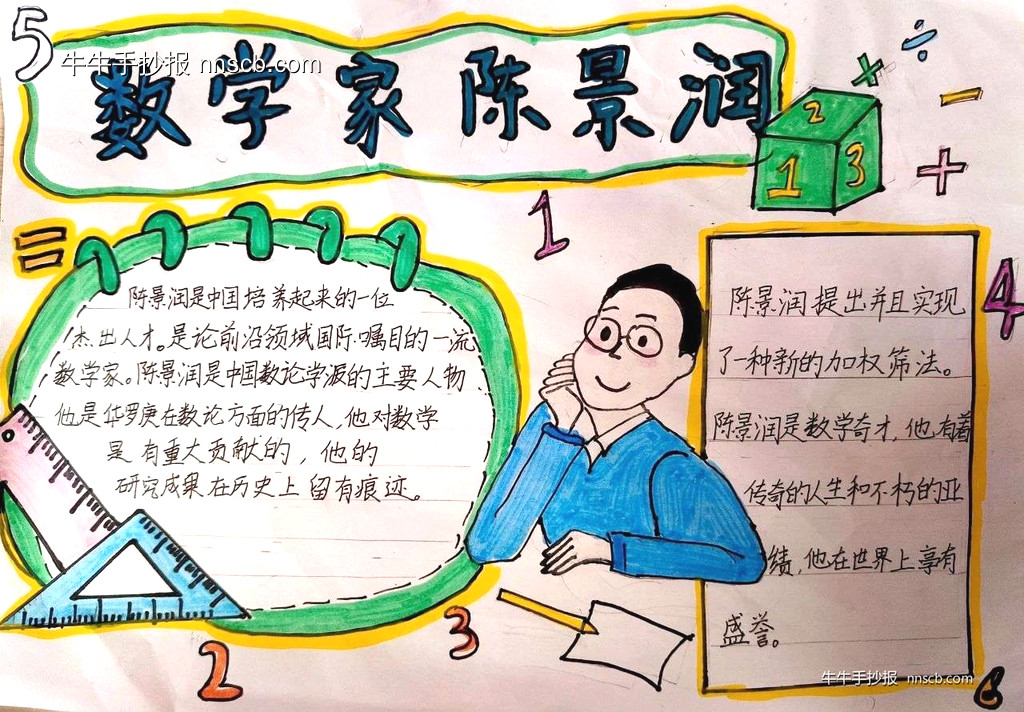 5
牛牛手抄报 nnscb.com
数学家 陈景润
2
1 3
÷
×
−
+
=
1
陈景润是中国培养起来的一位
杰出人才。是论前沿领域国际嘱目的一流
数学家。陈景润是中国数论学派的主要人物
他是华罗庚在数论方面的传人,他对数学
是有重大贡献的,他的
研究成果在历史上留有痕迹。
陈景润提出并且实现
了一种新的加权筛法。
陈景润是数学奇才,他有着
传奇的人生和不朽的业
绩,他在世界上享有
盛誉。
4
3
2
牛牛手抄报 nnscb.com
6